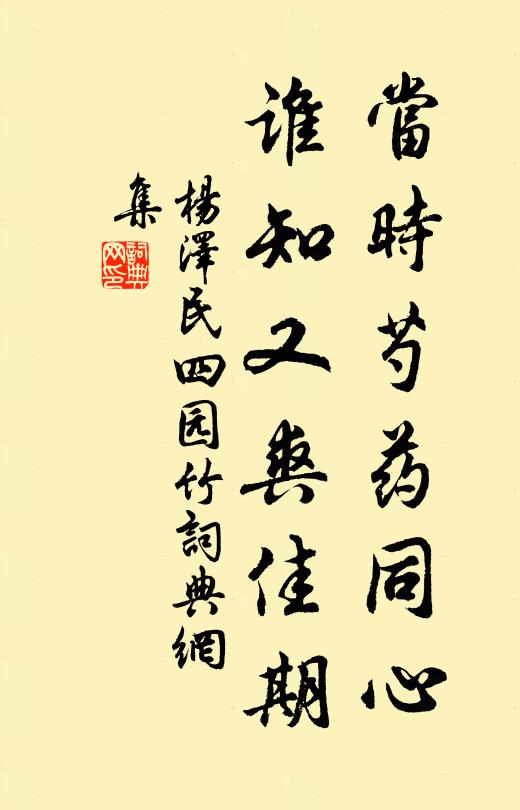 當時芍药同心
谁知又爽佳期
楊澤民四园竹詞典網
集
詞典
网印